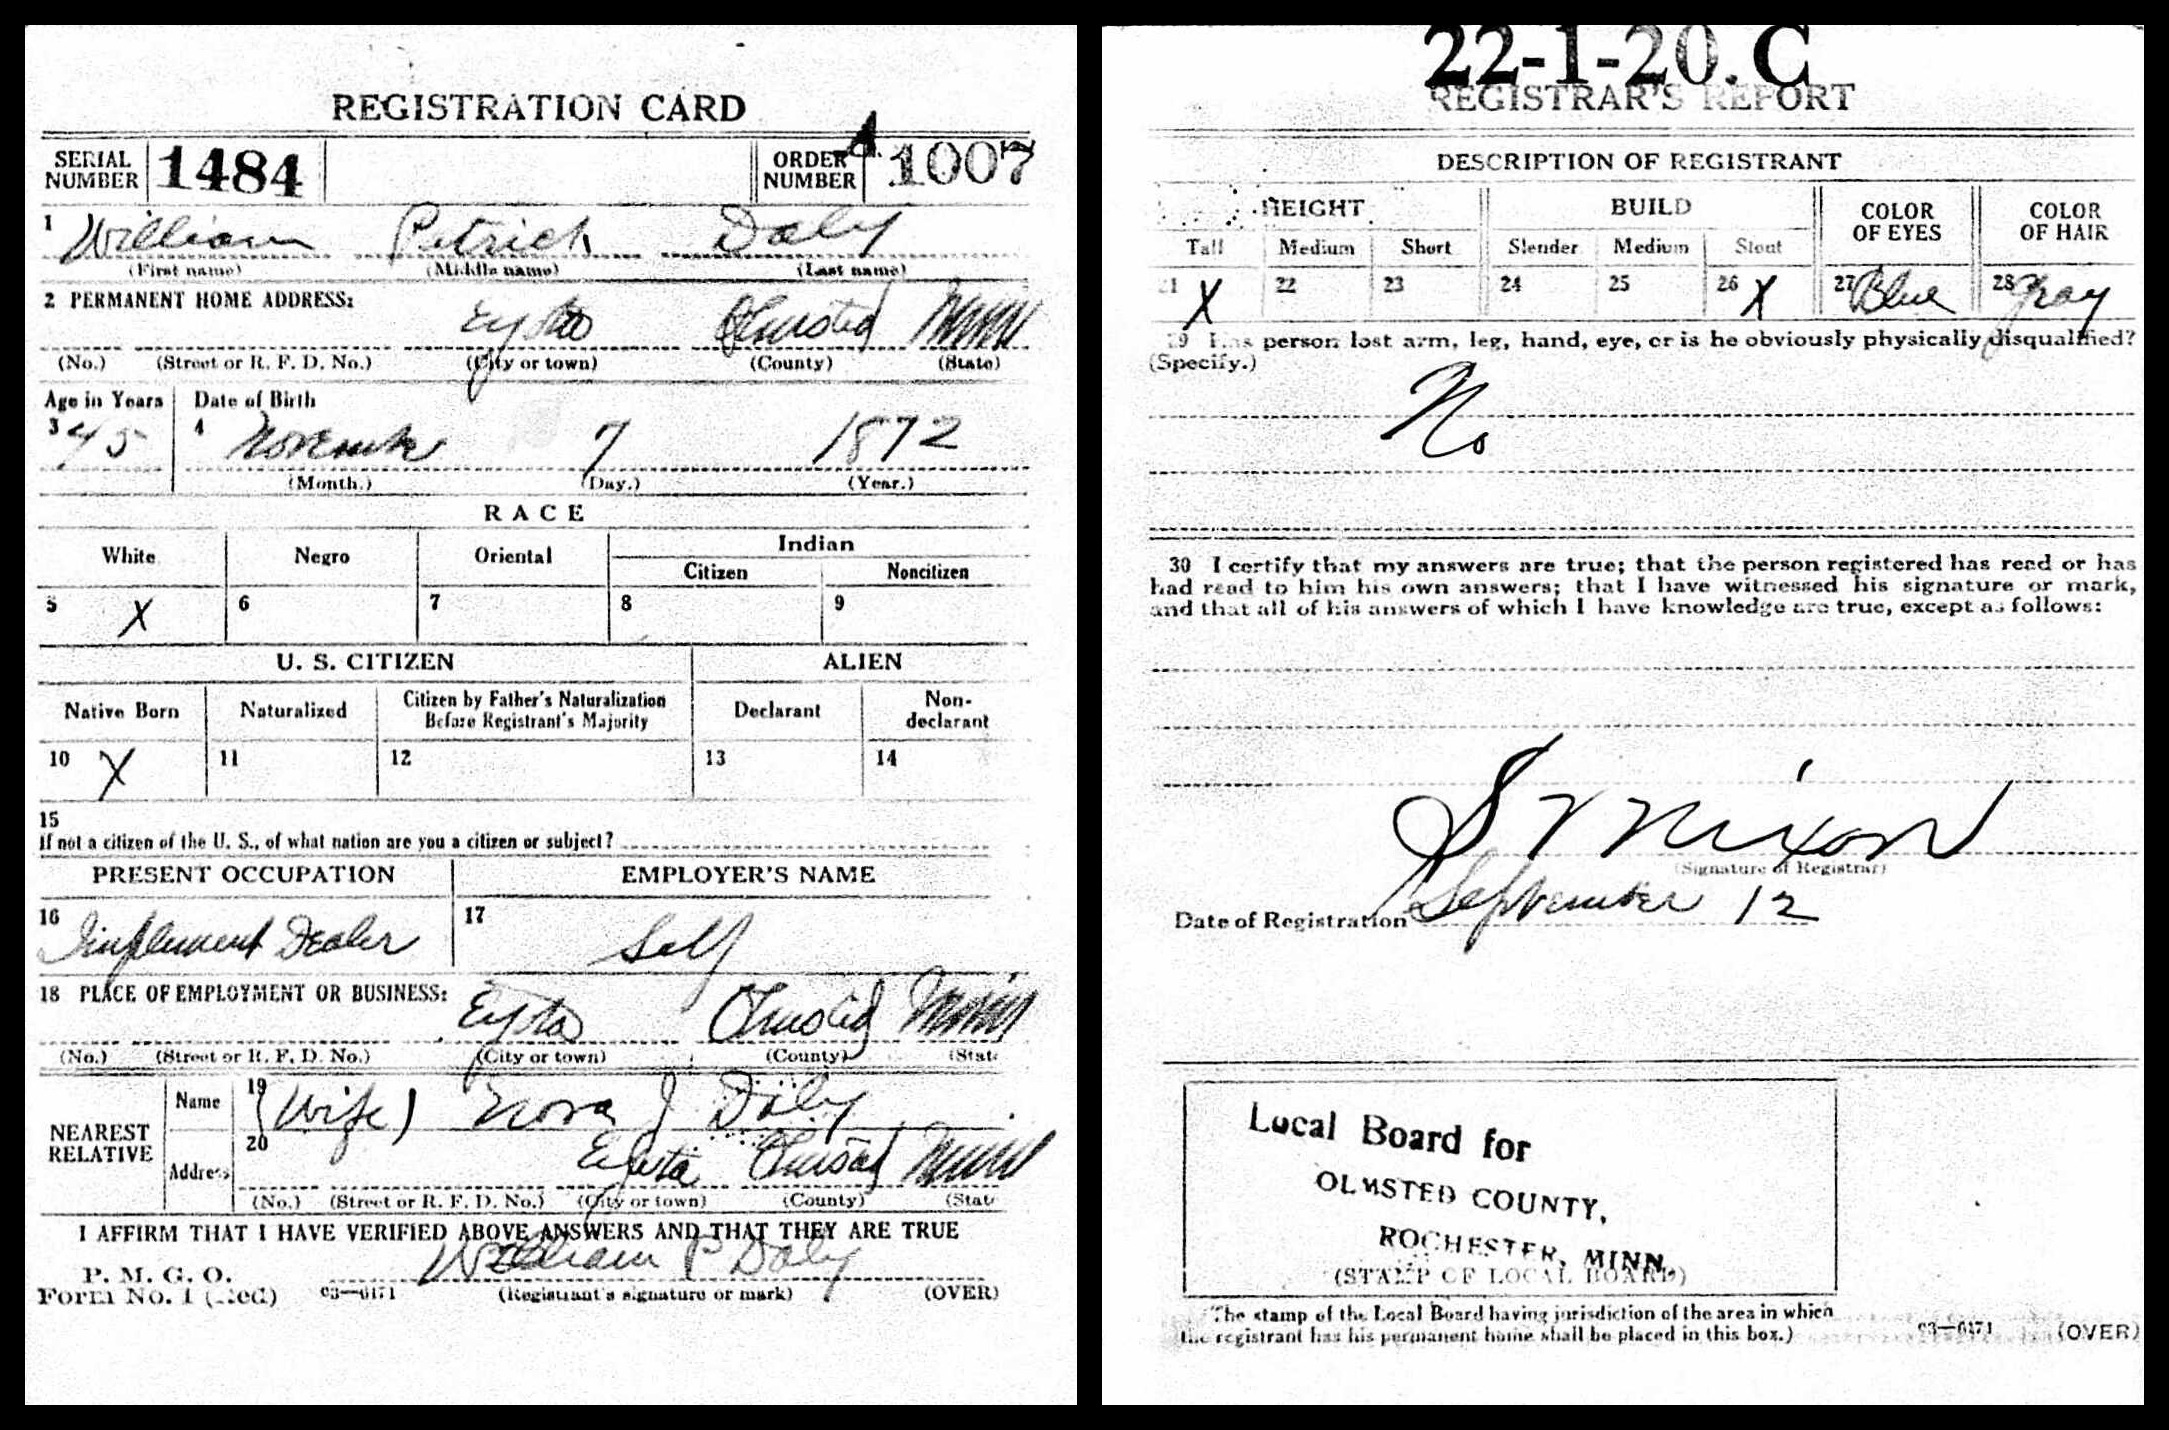 REGISTRATION CARD
SERIAL NUMBER 1484 ORDER NUMBER A 1007
1 William Patrick Daly
(First name) (Middle name) (Last name)
2 PERMANENT HOME ADDRESS:
Eyota Olmsted Minn
(No.) (Street or R. F. D. No.) (City or town) (County) (State)
Age in Years Date of Birth
3 45 4 November 7 1872
(Month.) (Day.) (Year.)
RACE
White Negro Oriental Indian
Citizen Noncitizen
5 X 6 7 8 9
U. S. CITIZEN ALIEN
Native Born Naturalized Citizen by Father's Naturalization Before Registrant's Majority Declarant Non-declarant
10 X 11 12 13 14
15
If not a citizen of the U. S., of what nation are you a citizen or subject?
PRESENT OCCUPATION EMPLOYER'S NAME
16 Implement Dealer 17 Self
18 PLACE OF EMPLOYMENT OR BUSINESS:
Eyota Olmsted Minn
(No.) (Street or R. F. D. No.) (City or town) (County) (State
NEAREST RELATIVE
Name 19 (Wife) Nora J Daly
Address 20 Eyota Olmsted Minn
(No.) (Street or R. F. D. No.) (City or town) (County) (State
I AFFIRM THAT I HAVE VERIFIED ABOVE ANSWERS AND THAT THEY ARE TRUE
William P Daly
P. M. G. O.
Form No. 1 (Red) 03—6171 (Registrant's signature or mark) (OVER)
22-1-20. C
REGISTRAR'S REPORT
DESCRIPTION OF REGISTRANT
HEIGHT BUILD COLOR OF EYES COLOR OF HAIR
Tall Medium Short Slender Medium Stout
21 X 22 23 24 25 26 X 27 Blue 28 Gray
29 Has person lost arm, leg, hand, eye, or is he obviously physically disqualified?
(Specify.)
No
30 I certify that my answers are true; that the person registered has read or has
had read to him his own answers; that I have witnessed his signature or mark,
and that all of his answers of which I have knowledge are true, except as follows:
Nixon
(Signature of Registrar)
Date of Registration September 12
Local Board for
OLMSTED COUNTY,
ROCHESTER, MINN.
(STAMP OF LOCAL BOARD)
(The stamp of the Local Board having jurisdiction of the area in which
the registrant has his permanent home shall be placed in this box.)
03—6171 (OVER)